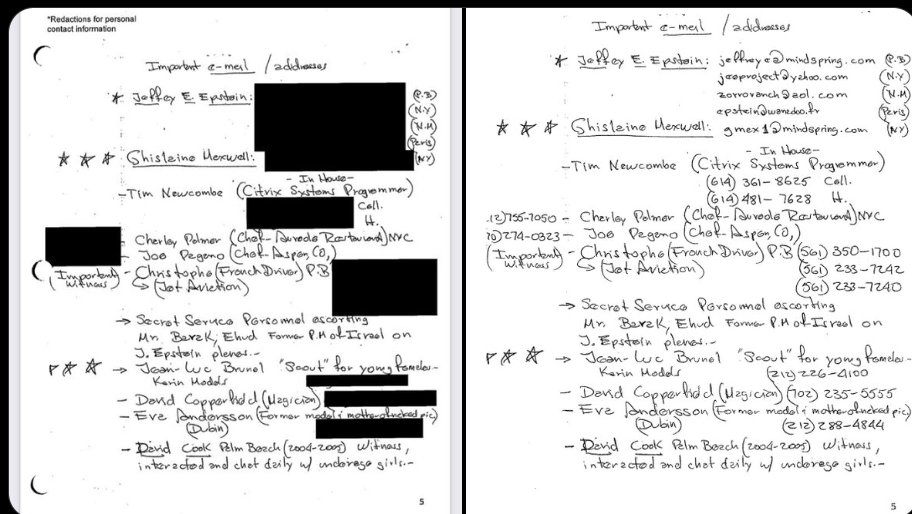 *Redactions for personal
contact information
Important e-mail / addresses
* Jeffrey E. Epstein:
(P.B)
(N.Y)
(N.M)
(Paris)
☆ ☆ ☆ Ghislaine Maxwell: (NY)
- In House -
- Tim Newcombe (Citrix Systems Programmer)
Cell.
H.
- Cherley Palmer (Chef - Restaurant) NYC
- Joe Pegano (Chef Aspen CO,)
(Important Witness) - Christophe (French Driver) P.B
↳ (Jet Aviation)
→ Secret Service Personnel escorting
Mr. Barak, Ehud Former P.M of Israel on
J. Epstein planes.-
☆ ☆ → Jean-Luc Brunel "Scout" for young females-
Karin Models
- David Copperfield (Magician)
- Eve Andersson (Former model & mother of naked pic)
(Dubin)
- David Cook Palm Beach (2004-2005) Witness,
interacted and chat daily w/ underage girls.-
5
Important e-mail / addresses
* Jeffrey E. Epstein: jeffreye@mindspring.com (P.B)
jeeproject@yahoo.com (N.Y)
zorroranch@aol.com (N.M)
epstein@wanadoo.fr (Paris)
☆ ☆ ☆ Ghislaine Maxwell: gmax1@mindspring.com (NY)
- In House -
- Tim Newcombe (Citrix Systems Programmer)
(614) 361-8625 Cell.
(614) 481-7628 H.
12)755-7050 - Cherley Palmer (Chef - Restaurant) NYC
70)274-0323 - Joe Pegano (Chef Aspen CO,)
(Important Witness) - Christophe (French Driver) P.B (561) 350-1700
↳ (Jet Aviation) (561) 233-7242
(561) 233-7240
→ Secret Service Personnel escorting
Mr. Barak, Ehud Former P.M of Israel on
J. Epstein planes.-
☆ ☆ → Jean-Luc Brunel "Scout" for young females-
Karin Models (212) 226-4100
- David Copperfield (Magician) (702) 235-5555
- Eve Andersson (Former model & mother of naked pic)
(Dubin) (212) 288-4844
- David Cook Palm Beach (2004-2005) Witness,
interacted and chat daily w/ underage girls.-
5